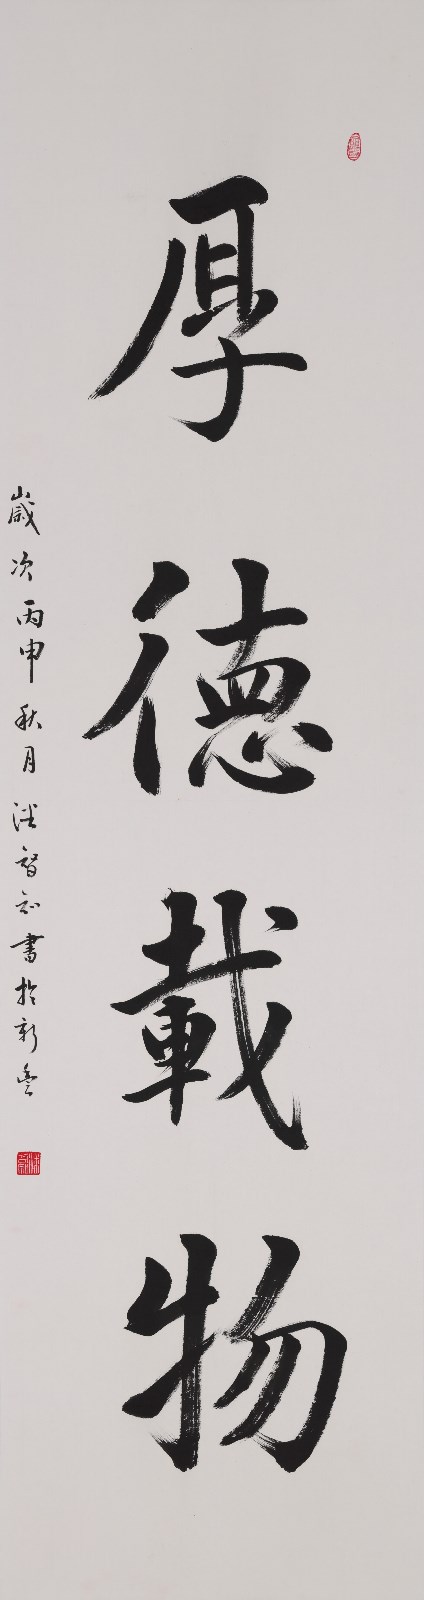 厚德載物
歲次丙申秋月 智 書於新